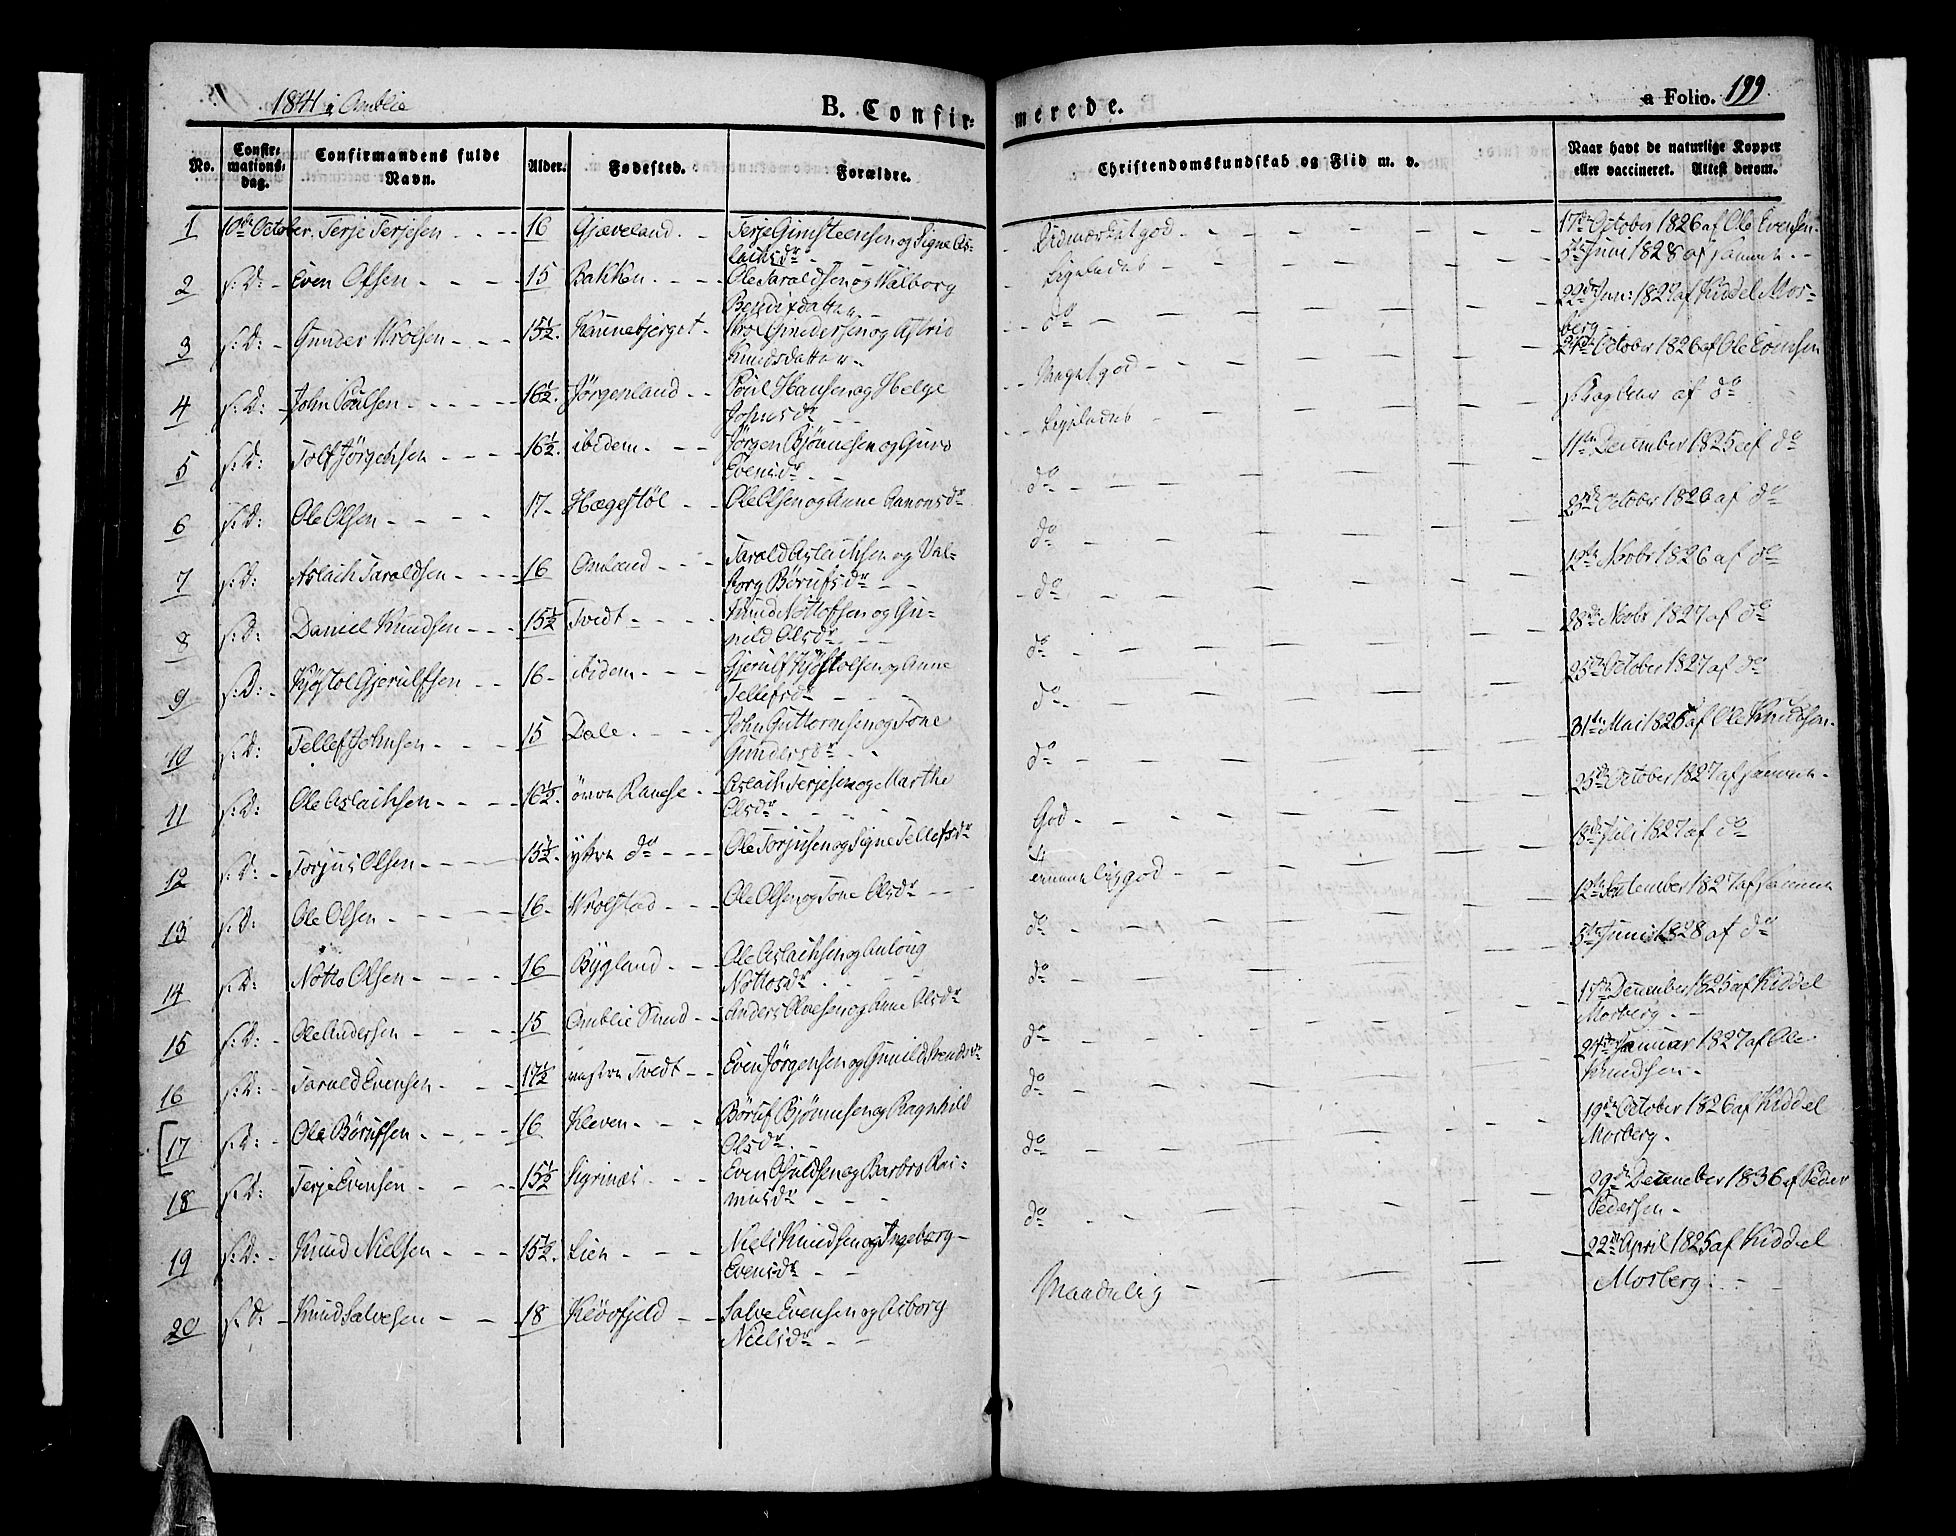 1841 i Amblie
B. Confir-
merede.
a Folio. 199.
No. Confir-mations-dag. Confirmandens fulde Navn. Alder. Fødested. Forældre. Christendomskundskab og Flid m. v. Naar havt de naturlige Kopper eller vaccineret. Attest derom.
1 10de October. Terje Terjesen 16 Gjæveland Terje Gunsteensen og Signe As-
lachsdr
Udmærket god 17de October 1826 af Ole Evensen
2 s: D: Even Olsen 15 Bakken Ole Taraldsen og Walborg
Bendixdatter
Ligeledes 5te Juni 1828 af samme
3 s: D: Gunder Wrolsen 15½ Kannebjerget Wrol Gundersen og Astrid
Knudsdatter
do 22de Jan: 1827 af Kiddel Mos-
berg
4 s: D: John Poulsen 16½ Jörgenland Poul Hansen og Helge
Johnsdr
Meget god October 1826 af Ole Evensen
5 s: D: Tolf Jörgensen 16½ ibidem Jörgen Bjönnesen og Guro
Evensdr
Ligeledes s: Dag Aar af do
6 s: D: Ole Olsen 17 Hægestöl Ole Olsen og Anne Aanonsdr
do 11te December 1825 af do
7 s: D: Aslach Taraldsen 16 Omland Tarald Aslachsen og Val-
borg Börufsdr
do 25de October 1826 af do
8 s: D: Daniel Knudsen 15½ Tvedt Knud Nottolfsen og Gu-
nild Olsdr
do 12te Novbr 1826 af do
9 s: D: Kjöstol Gjerulfsen 16 ibidem Gjerulf Kjöstolsen og Anne
Tellefsdr
do 28de Novbr 1827 af do
10 s: D: Tellef Johnsen 15 Dale John Guttormsen og Tone
Gundersdr
do 25de October 1827 af do
11 s: D: Ole Aslachsen 16½ övre Ramse Aslach Terjesen og Marthe
Olsdr
do 31te Mai 1826 af Ole Knudsen
12 s: D: Torjus Olsen 15½ ytre do Ole Torjusen og Signe Tellefsdr
God 25de October 1827 af samme
13 s: D: Ole Olsen 16 Wrolstad Ole Olsen og Tone Olsdr
god 18de Juli 1827 af do
14 s: D: Notto Olsen 16 Bygland Ole Aslachsen og Anloug
Nottosdr
do 12te September 1827 af samme
15 s: D: Ole Andersen 15 Amblie Sund Anders Olvesen og Anne Olsdr
do 5te Juni 1828 af do
16 s: D: Tarald Evensen 17½ Tvedt Even Jörgensen og Gunild Svendsdr
do 17de December 1825 af Kiddel
Mosberg
17 s: D: Ole Börufsen 16 Kleven Böruf Bjönnesen og Ragnhild
Olsdr
do Januar 1827 af Ole
Knudsen
18 s: D: Terje Evensen 15½ Sigrinæs Even Osuldsen og Barbro Ras-
musdr
do 19de October 1826 af Kiddel
Mosberg
19 s: D: Knud Nielsen 15½ Lien Niels Knudsen og Ingeborg
Evensdr
do 29de December 1836 af Peder
Pedersen
20 s: D: Knud Salvesen 18 Klövfjeld Salve Evensen og Asborg
Nielsdr
Maadelig 22de April 1825 af Kiddel
Mosberg